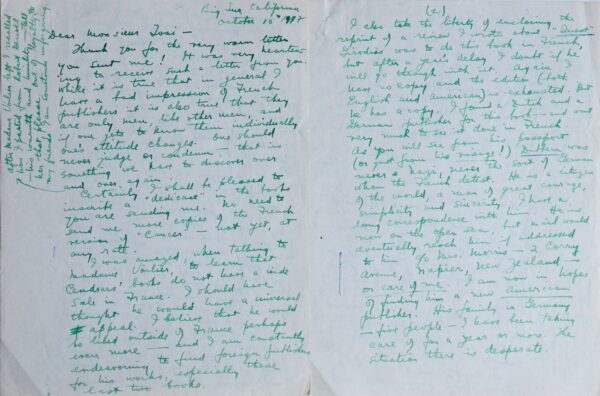 Big Sur, California
October 10th 1947
Dear Monsieur Tosi —
Thank you for the very warm letter
you sent me! It was very hearten-
ing to receive such a letter from you.
While it is true that in general I
have a bad impression of French
publishers it is also true that they
are only men, like other men, and
if one gets to know them individually
one's attitude changes. One should
never judge or condemn — that is
something we have to discover over
and over again.
Certainly I shall be pleased to
inscribe a "dédicace" in the books
you are sending me. No need to
send me more copies of the French
version of "Cancer" — not yet, at
any rate.
I was amazed, when talking to
Madame Voilier, to learn that
Cendrars' books do not have a wide
sale in France. I should have
thought he would have a universal
appeal. I believe that he would
be liked outside of France perhaps
even more — and I am constantly
endeavoring to find foreign publishers
for his works, especially these
last two books.
After Madame Voilier left I recalled
that
her that please out of loyalty to
my friends I am sometimes
(2)
I also take the liberty of enclosing the
reprint of a review I wrote about
Girodias was to do this book in French,
but after a year's delay, I doubt if he
will go through with his agreement. I
have no copy and the edition (both
English and American) is exhausted. But
he has a copy. I found a Dutch and a
German publisher for this book — and want
very much to see it done in French.
As you will see from his
(or just from his visage!), Dibbern was
never a Nazi, never the sort of German
whom the French detest. He is a citizen
of the world, a man of great courage,
simplicity and sincerity. I have a
long correspondence with him. He is
now on the open sea, but mail would
eventually reach him if addressed
to him c/o Mrs. Morris — 2 Corry
Avenue, Napier, New Zealand —
or care of me. I am now in hopes
of finding him a new American
publisher. His family in Germany
— five people — I have been taking
care of for a year or more. The
situation there is desperate.